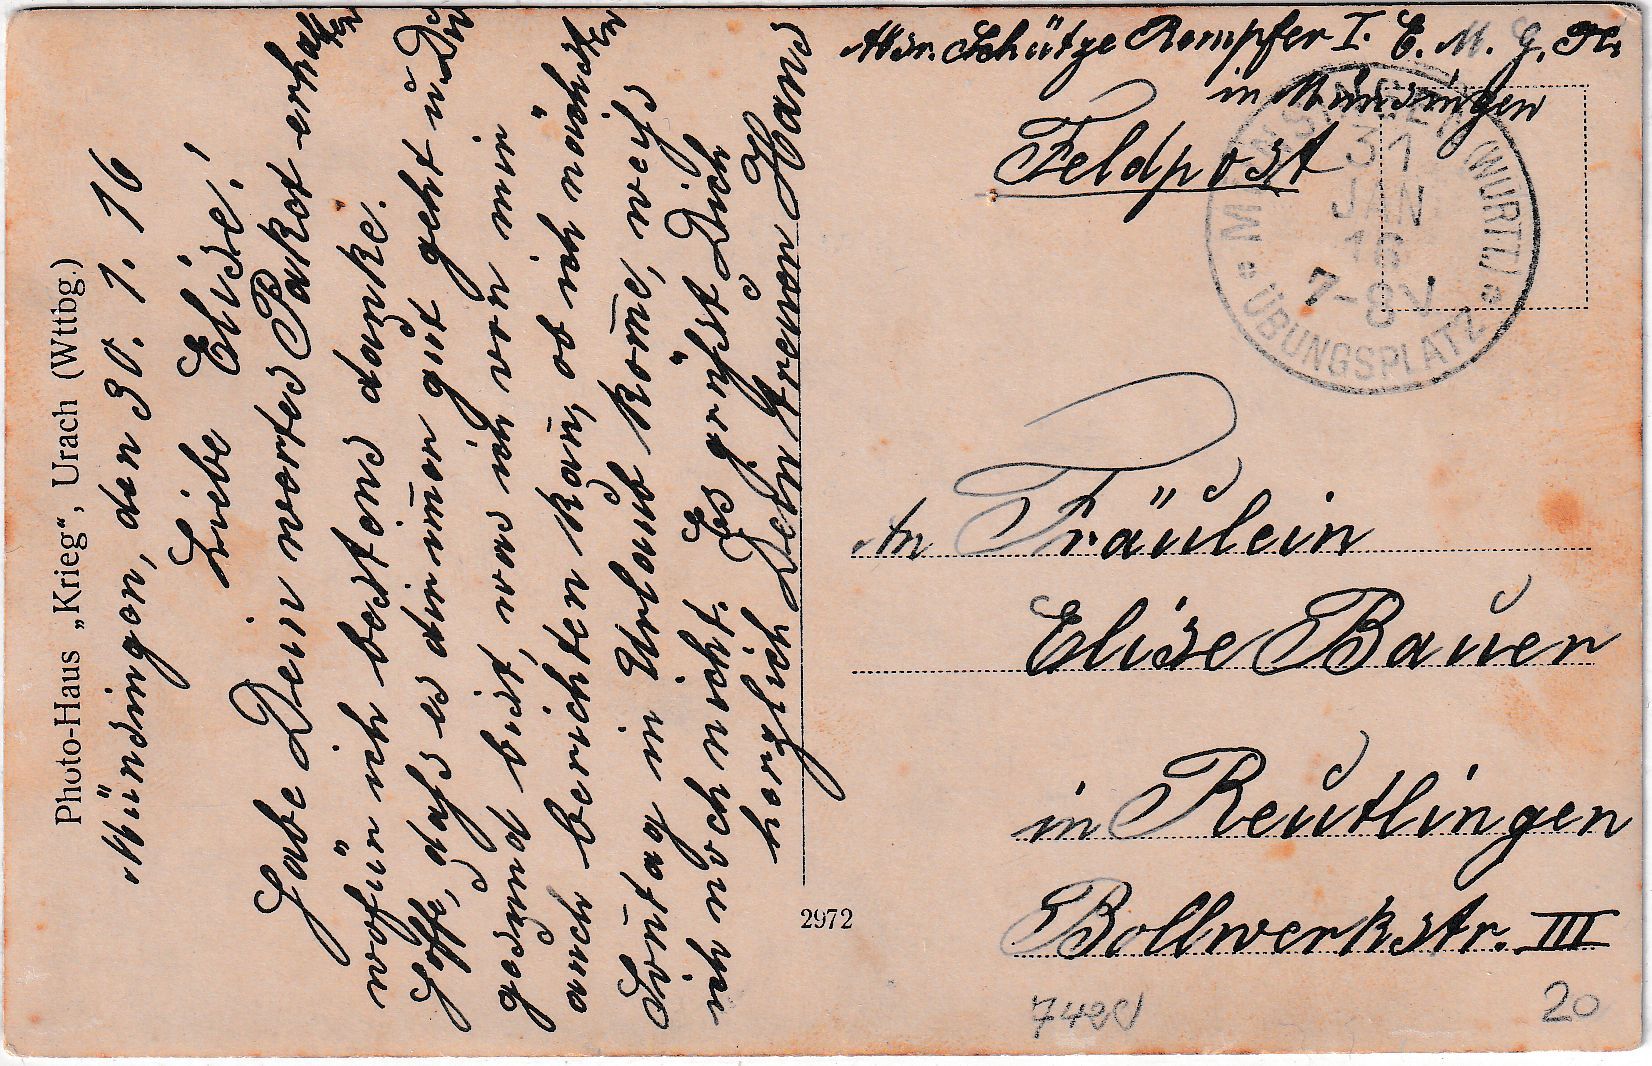 Photo-Haus „Krieg“, Urach (Wttbg.)
Münsingen, den 30. 1. 16
Liebe Elise!
Habe Dein wertes Paket erhalten
wofür ich bestens danke.
Hoffe, daß es dir immer gut geht u. Du
gesund bist, was ich von mir
auch berichten kann, ob ich nächsten
Sonntag in Urlaub komme, weiß
ich noch nicht. Es grüßt Dich
herzlich Dein treuer Hans
2972
Absr. Schütze Rempfer I. E. M. G. K.
in Münsingen
Feldpost
MÜNSINGEN (WÜRTT.)
31
JAN
16
7-8V
ÜBUNGSPLATZ
An Fräulein
Elise Bauer
in Reutlingen
Bollwerkstr. III
20